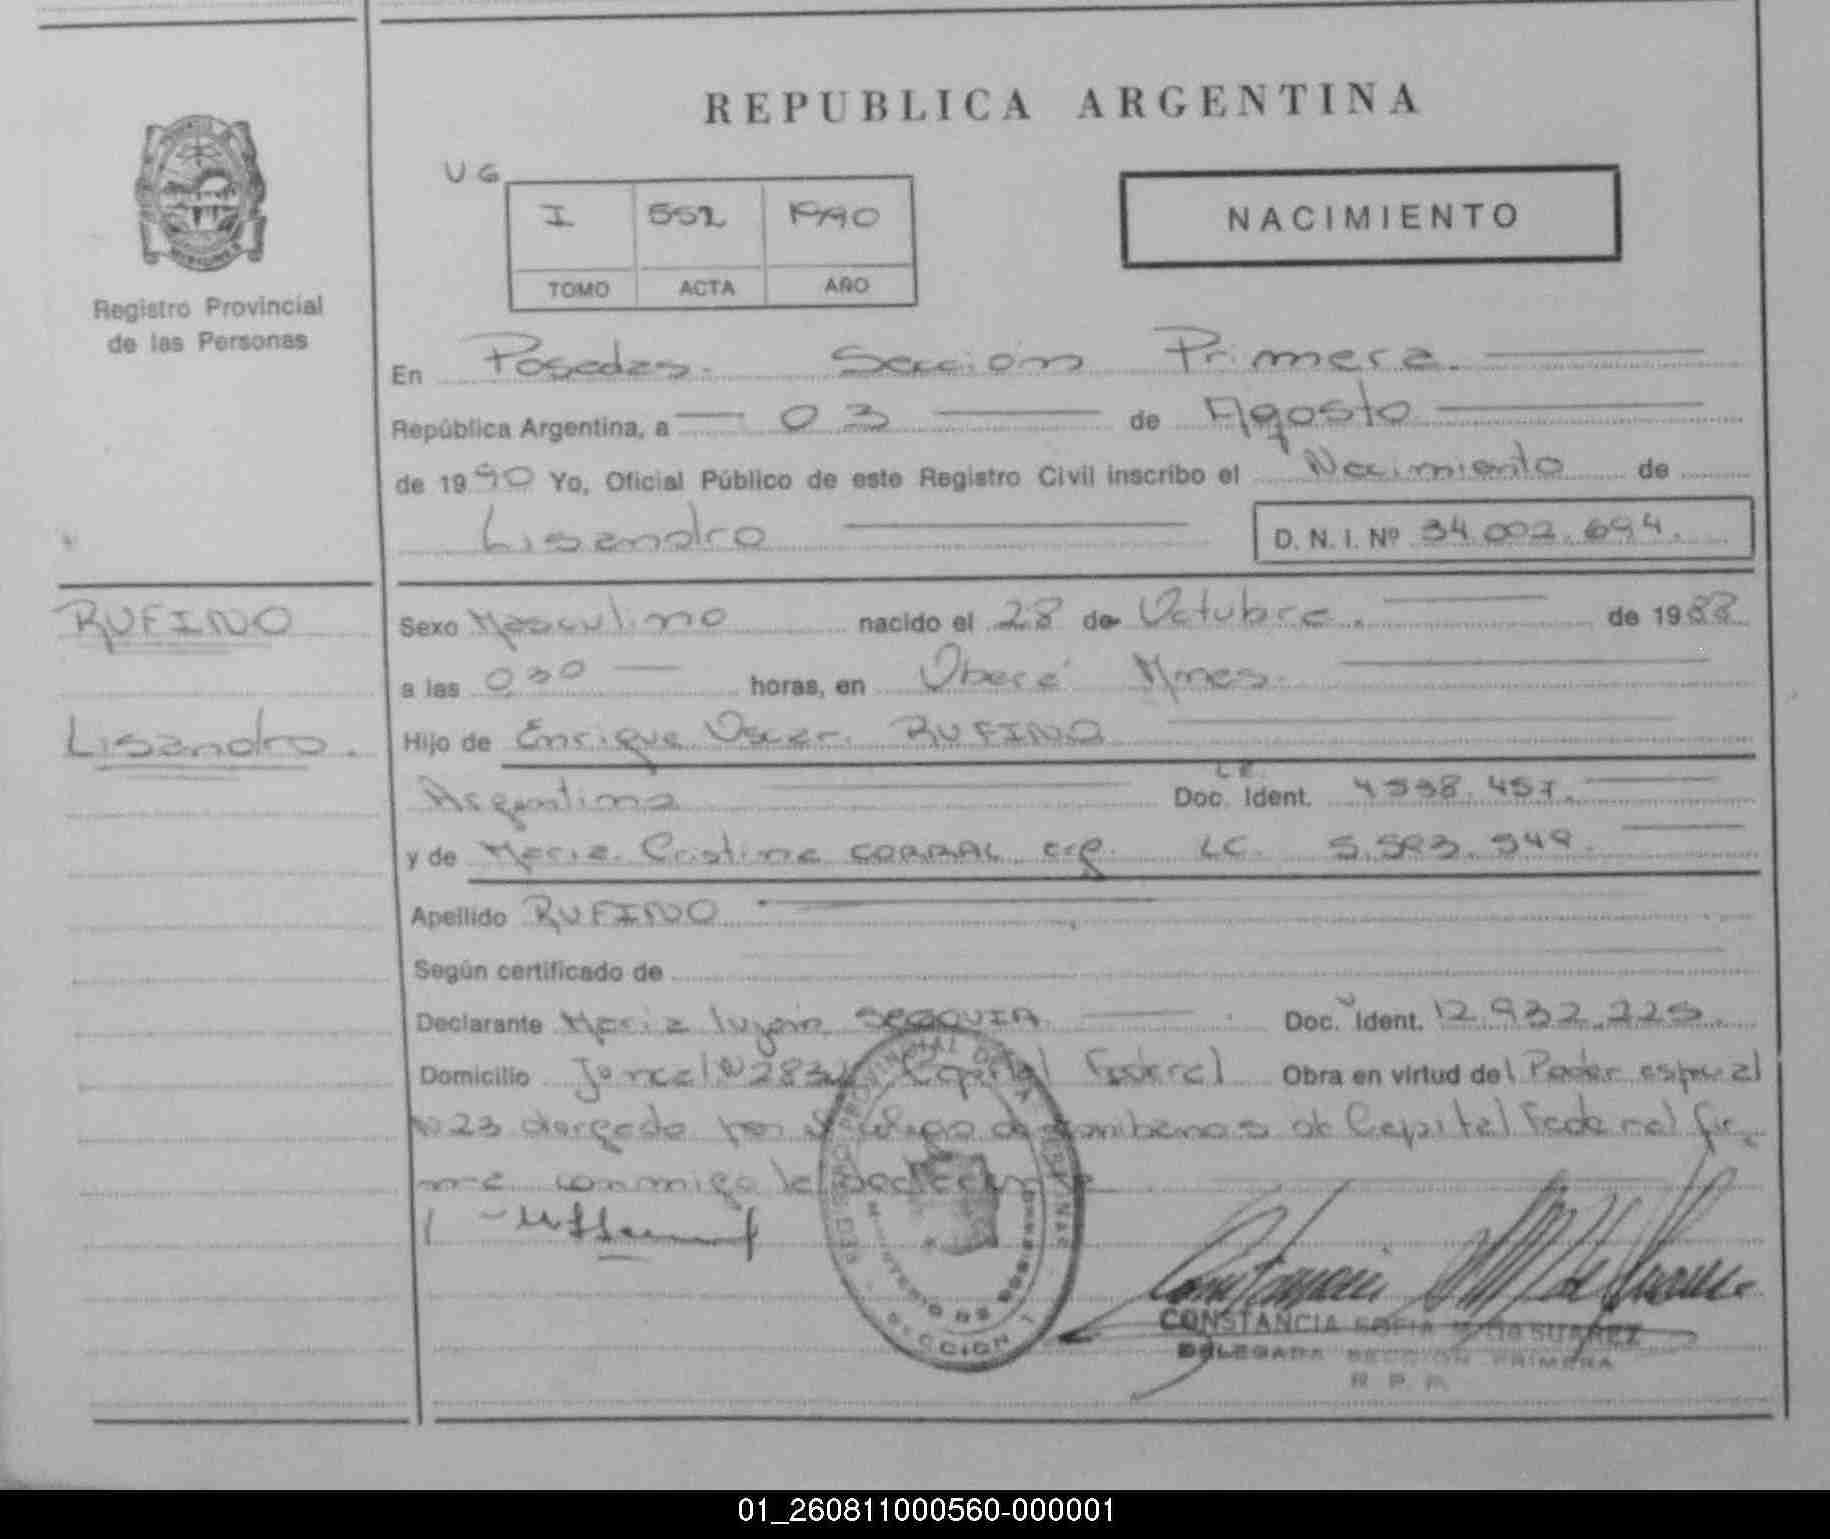 REPUBLICA ARGENTINA
UG
I 552 1990
TOMO ACTA AÑO
NACIMIENTO
Registro Provincial
de las Personas
En Posadas. Sección Primera.
República Argentina, a 03 de Agosto
de 1990 Yo, Oficial Público de este Registro Civil inscribo el Nacimiento de
Lisandro D. N. I. Nº 34.002.694.
RUFINO
Lisandro.
Sexo Masculino nacido el 28 de Octubre. de 1988
a las 030 horas, en Oberá Mnes.
Hijo de Enrique Oscar. RUFINO
Argentino L.E. Doc. Ident. 4538.457.
y de Maria Cristina CORRAL arg. LC. 5.593.949.
Apellido RUFINO
Según certificado de
Declarante Maria Lujan Doc. Ident. 12.932.225.
Domicilio Capital Federal Obra en virtud del Poder especial
Nº 23 otorgado por el Colegio de Escribanos de Capital Federal fir
ma conmigo la declarante
CONSTANCIA SOFIA M. DE SUAREZ
DELEGADA SECCION PRIMERA
R. P. P.
SECCION 1
01_260811000560-000001